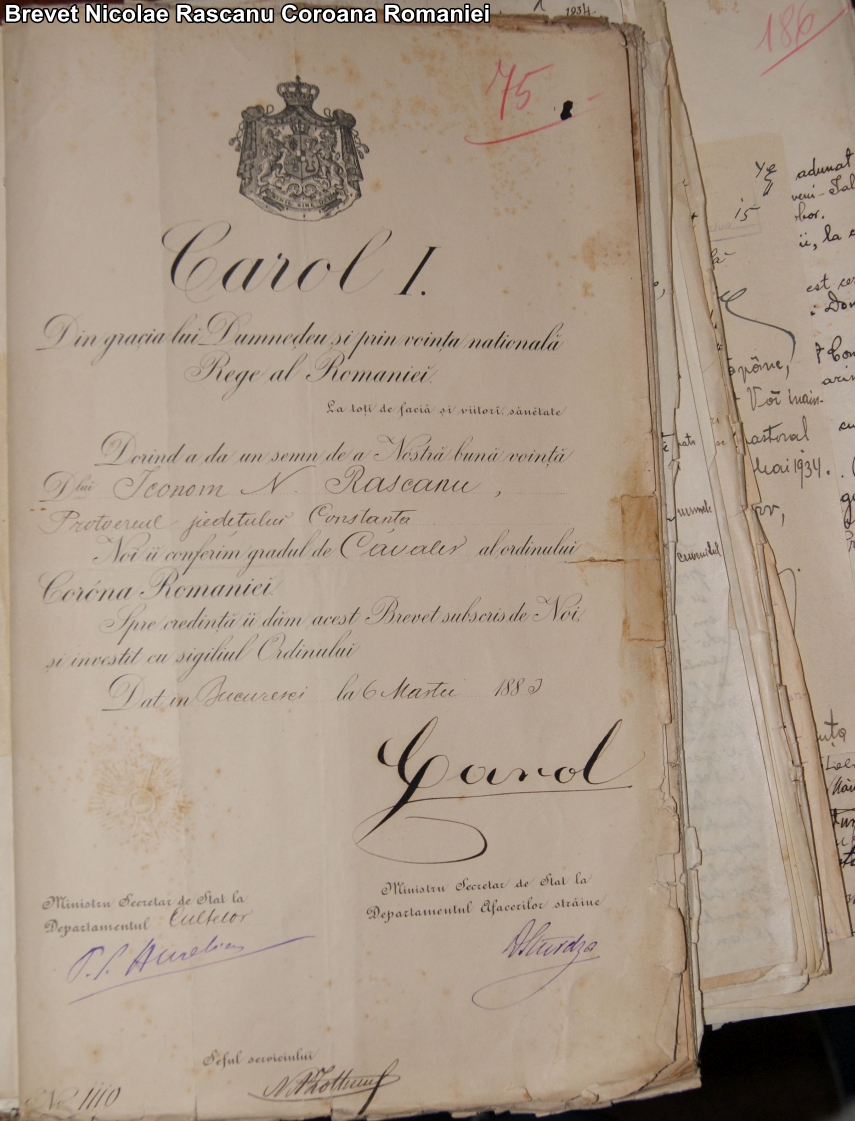 Brevet Nicolae Rascanu Coroana Romaniei
1934.
75
186
Carol I.
Din grația lui Dumnedeu și prin voința națională
Rege al Romaniei.
La toți de faciă și viitori, sănĕtate
Dorind a da un semn de a Nostră bună voință
Dlui Iconom N. Rascanu,
Protoereul județului Constanța
Noi ii conferim gradul de Cavaler al ordinului
Coróna Romaniei.
Spre credință ii dăm acest Brevet subscris de Noi,
și investit cu sigiliul Ordinului
Dat in Bucuresci la 6 Martie 1883
Carol
Ministru Secretar de Stat la
Departamentul Cultelor
P. S. Aurelian
Ministru Secretar de Stat la
Departamentul Afacerilor străine
DSturdza
Șeful serviciului
No 1110
adunat
15
ii, la
est
pâne,
Voi inain-
pastoral
Mai 1934.